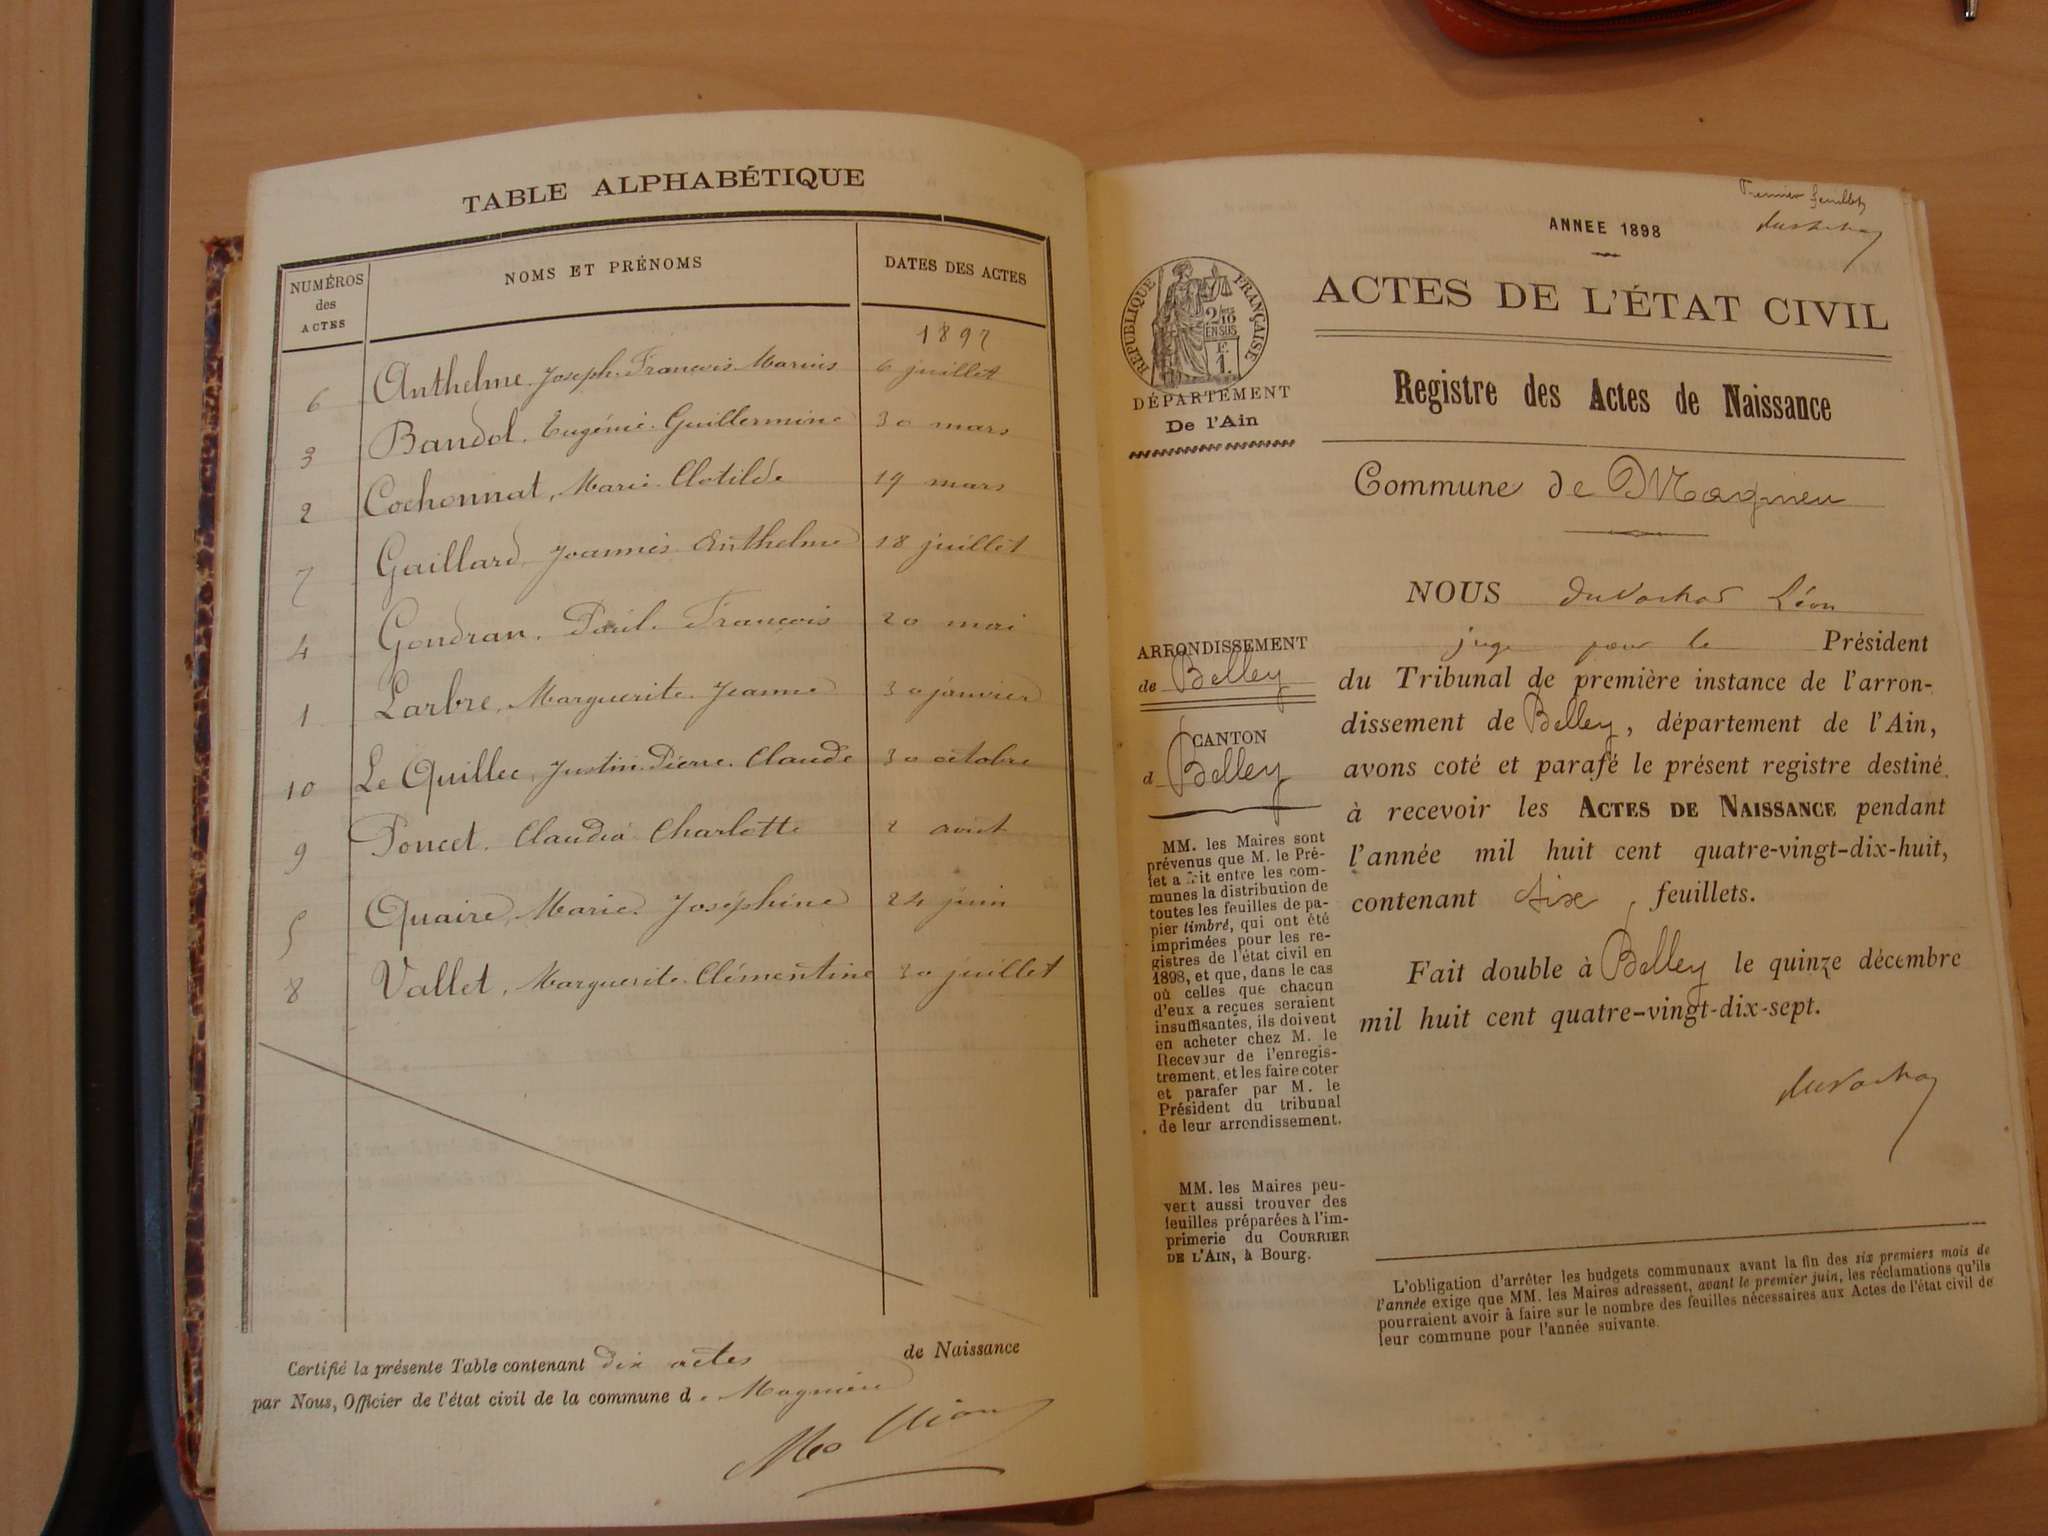 TABLE ALPHABÉTIQUE
NUMÉROS des ACTES
NOMS ET PRÉNOMS
DATES DES ACTES
1897
6 Anthelme Joseph François Marius 6 juillet
3 Bandol. Eugénie Guillermine 30 mars
2 Cochonnat, Marie Clotilde 19 mars
7 Gaillard, Joannès Anthelme 18 juillet
4 Gondran. Paul. François 20 mai
1 Larbre, Marguerite Jeanne 30 janvier
10 Le Quillec, Justin Pierre Claude 30 octobre
9 Poncet. Claudia Charlotte 2 août
5 Quaire, Marie Joséphine 24 juin
8 Vallet, Marguerite Clémentine 20 juillet
Certifié la présente Table contenant dix actes de Naissance
par Nous, Officier de l'état civil de la commune d. Magnieu
Premier feuillet
ANNEE 1898
RÉPUBLIQUE FRANÇAISE
2/10
EN SUS
F.
1.
DÉPARTEMENT
De l'Ain
ACTES DE L'ÉTAT CIVIL
Registre des Actes de Naissance
Commune de Magnieu
NOUS Duvachat Léon
juge pour le Président
du Tribunal de première instance de l'arron-
dissement de Belley, département de l'Ain,
avons coté et parafé le présent registre destiné
à recevoir les ACTES DE NAISSANCE pendant
l'année mil huit cent quatre-vingt-dix-huit,
contenant six feuillets.
Fait double à Belley le quinze décembre
mil huit cent quatre-vingt-dix-sept.
ARRONDISSEMENT
de Belley
CANTON
d Belley
MM. les Maires sont
prévenus que M. le Pré-
fet a fait entre les com-
munes la distribution de
toutes les feuilles de pa-
pier timbré, qui ont été
imprimées pour les re-
gistres de l'état civil en
1898, et que, dans le cas
où celles que chacun
d'eux a reçues seraient
insuffisantes, ils doivent
en acheter chez M. le
Receveur de l'enregis-
trement, et les faire coter
et parafer par M. le
Président du tribunal
de leur arrondissement.
MM. les Maires peu-
vent aussi trouver des
feuilles préparées à l'im-
primerie du COURRIER
DE L'AIN, à Bourg.
L'obligation d'arrêter les budgets communaux avant la fin des six premiers mois de
l'année exige que MM. les Maires adressent, avant le premier juin, les réclamations qu'ils
pourraient avoir à faire sur le nombre des feuilles nécessaires aux Actes de l'état civil de
leur commune pour l'année suivante.